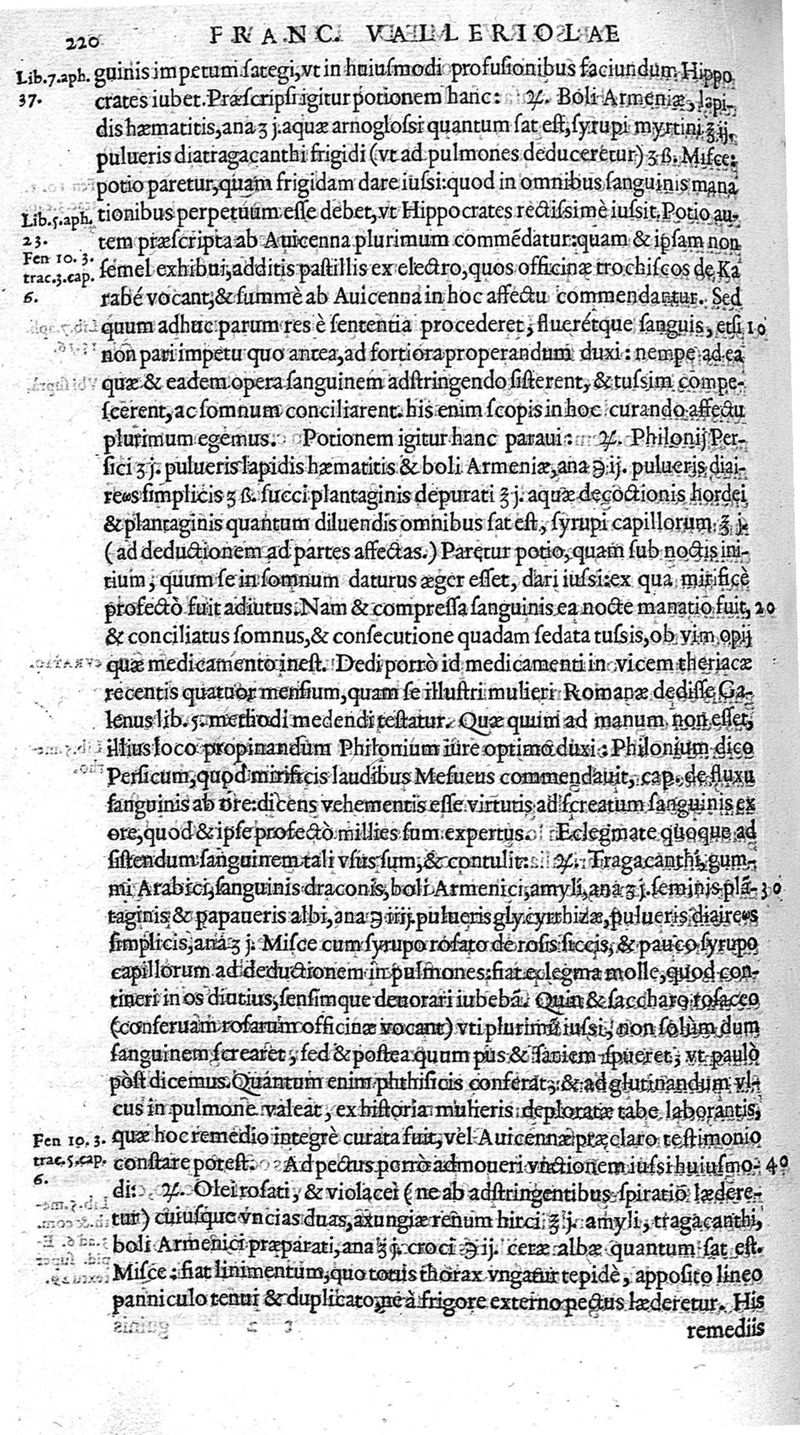 220 FRANC. VALLERIOLAE
Lib.7.aph. guinis impetum sategi, vt in huiusmodi profusionibus faciundum Hippo
37. crates iubet. Præscripsi igitur potionem hanc: ℞. Boli Armeniæ, lapi-
dis hæmatitis, ana ʒ j. aquæ arnoglossi quantum sat est, syrupi myrtini ℥ ij.
pulueris diatragacanthi frigidi (vt ad pulmones deduceretur) ʒ ß. Misce:
potio paretur, quam frigidam dare iussi: quod in omnibus sanguinis mana
Lib.5.aph. tionibus perpetuum esse debet, vt Hippocrates rectissimè iussit. Potio au-
23. tem præscripta ab Auicenna plurimum commēdatur: quam & ipsam non
Fen 10. 3. semel exhibui, additis pastillis ex electro, quos officinæ trochiscos de Ka
trac.3.cap.
6. rabé vocant, & summè ab Auicenna in hoc affectu commendantur. Sed
quum adhuc parum res è sententia procederet, flueretque sanguis, etsi 10
non pari impetu quo antea, ad fortiora properandum duxi: nempe ad ea
quæ & eadem opera sanguinem adstringendo sisterent, & tussim compe-
scerent, ac somnum conciliarent. his enim scopis in hoc curando affectu
plurimum egemus. Potionem igitur hanc paraui: ℞. Philonij Per-
sici ʒ j. pulueris lapidis hæmatitis & boli Armeniæ, ana ℈ ij. pulueris diai-
reωs simplicis ʒ ß. succi plantaginis depurati ℥ j. aquæ decoctionis hordei
& plantaginis quantum diluendis omnibus sat est, syrupi capillorum ℥ j.
(ad deductionem ad partes affectas.) Paretur potio, quam sub noctis ini-
tium, quum se in somnum daturus æger esset, dari iussi: ex qua mirificè
profectò fuit adiutus. Nam & compressa sanguinis ea nocte manatio fuit, 20
& conciliatus somnus, & consecutione quadam sedata tussis, ob vim opij
quæ medicamento inest. Dedi porrò id medicamenti in vicem theriacæ
recentis quatuor mensium, quam se illustri mulieri Romanæ dedisse Ga-
lenus lib. 5. methodi medendi testatur. Quæ quum ad manum non esset,
illius loco propinandum Philonium iure optimo duxi: Philonium dico
Persicum, quod mirificis laudibus Mesueus commendauit, cap. de fluxu
sanguinis ab ore: dicens vehementis esse virtutis ad screatum sanguinis ex
ore, quod & ipse profectò millies sum expertus. Eclegmate quoque ad
sistendum sanguinem tali vsus sum, & contulit: ℞. Tragacanthi, gum-
mi Arabici, sanguinis draconis, boli Armenici, amyli, ana ʒ j. seminis plā- 30
taginis & papaueris albi, ana ℈ iiij. pulueris glycyrrhizæ, pulueris diaireωs
simplicis, ana ʒ j. Misce cum syrupo rosato de rosis siccis, & pauco syrupo
capillorum ad deductionem in pulmones: fiat eclegma molle, quod con-
tineri in os diutius, sensimque deuorari iubebā. Quin & saccharo rosaceo
(conseruam rosarum officinæ vocant) vti plurimū iussi, non solùm dum
sanguinem screaret, sed & postea quum pus & saniem spueret, vt paulò
pòst dicemus. Quantum enim phthisicis conferat, & ad glutinandum vl-
cus in pulmone valeat, ex historia mulieris deploratæ tabe laborantis,
Fen 10. 3. quæ hoc remedio integrè curata fuit, vel Auicennæ præclaro testimonio
trac.5.cap. constare potest. Ad pectus porrò admoueri vnctionem iussi huiusmo- 40
6. di: ℞. Olei rosati, & violacei (ne ab adstringentibus spiratio læдere-
tur) cuiusque vncias duas, axungiæ renum hirci ℥ j. amyli, tragacanthi,
boli Armenici præparati, ana ℥ j. croci ℈ ij. ceræ albæ quantum sat est.
Misce: fiat linimentum, quo totus thorax vngatur tepidè, apposito lineo
panniculo tenui & duplicato, ne à frigore externo pectus læderetur. His
remediis